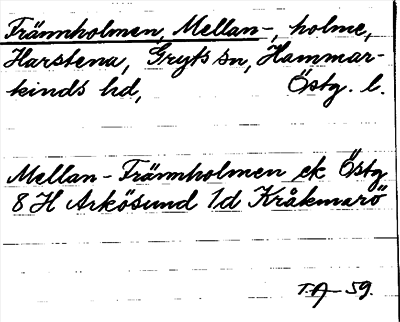 Främnholmen, Mellan-, holme,
Harstena, Gryts sn, Hammar-
kinds hd, Östg. l.
Mellan-Främnholmen ek Östg
8 H Arkösund 1d Kråkmarö
T.A-59.